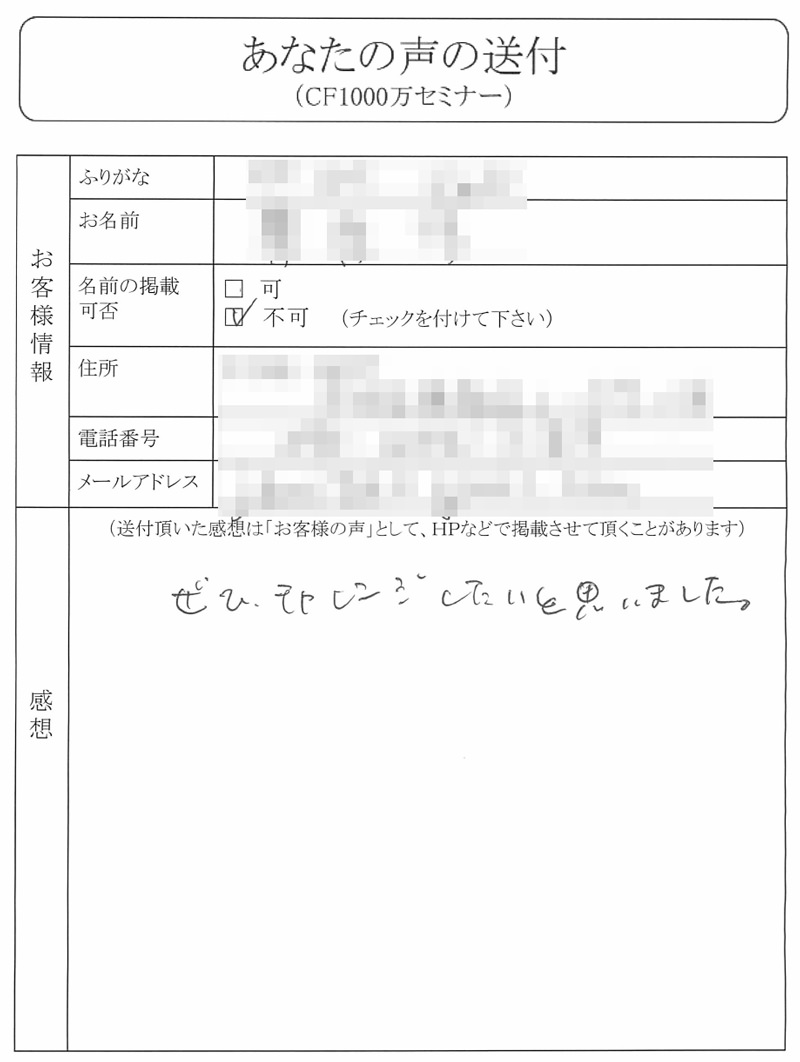 あなたの声の送付
（CF1000万セミナー）
お客様情報
ふりがな
お名前
名前の掲載
可否
□ 可
☑ 不可 （チェックを付けて下さい）
住所
電話番号
メールアドレス
感想
（送付頂いた感想は「お客様の声」として、HPなどで掲載させて頂くことがあります）
ぜひ、チャレンジしたいと思いました。